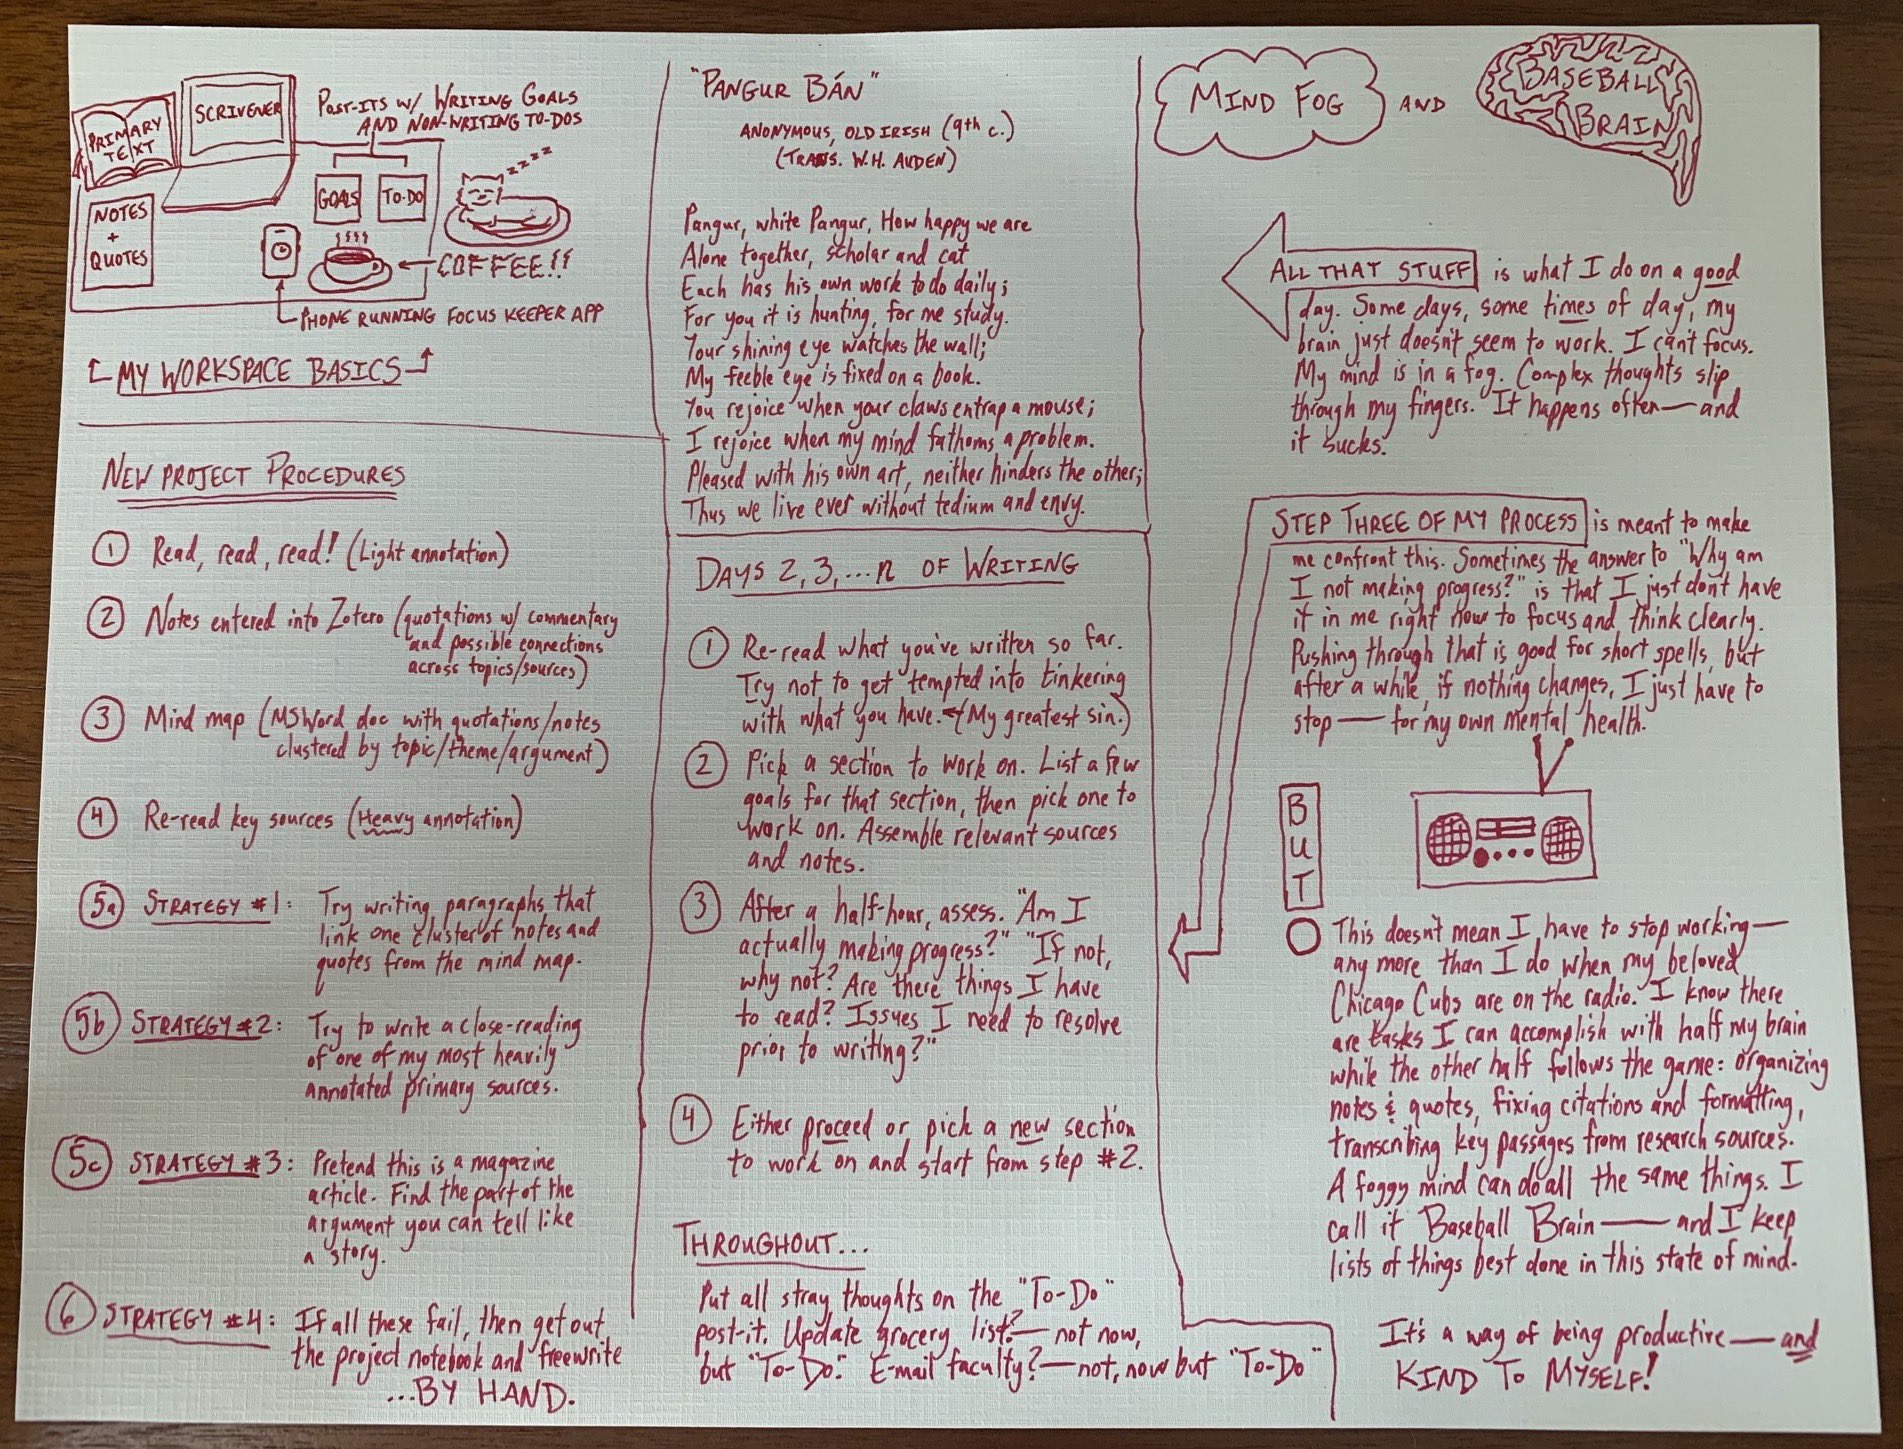 PRIMARY
TEXT
SCRIVENER
POST-ITS W/ WRITING GOALS
AND NON-WRITING TO-DOS
NOTES
+
QUOTES
GOALS
TO-DO
zzzz
COFFEE!!
PHONE RUNNING FOCUS KEEPER APP
MY WORKSPACE BASICS
NEW PROJECT PROCEDURES
1 Read, read, read! (Light annotation)
2 Notes entered into Zotero (quotations w/ commentary
and possible connections
across topics/sources)
3 Mind map (MSWord doc with quotations/notes
clustered by topic/theme/argument)
4 Re-read key sources (Heavy annotation)
5a STRATEGY #1: Try writing paragraphs that
link one cluster of notes and
quotes from the mind map.
5b STRATEGY #2: Try to write a close-reading
of one of my most heavily
annotated primary sources.
5c STRATEGY #3: Pretend this is a magazine
article. Find the part of the
argument you can tell like
a story.
6 STRATEGY #4: If all these fail, then get out
the project notebook and freewrite
...BY HAND.
"PANGUR BÁN"
ANONYMOUS, OLD IRISH (9th c.)
(TRANS. W.H. AUDEN)
Pangur, white Pangur, How happy we are
Alone together, scholar and cat
Each has his own work to do daily;
For you it is hunting, for me study.
Your shining eye watches the wall;
My feeble eye is fixed on a book.
You rejoice when your claws entrap a mouse;
I rejoice when my mind fathoms a problem.
Pleased with his own art, neither hinders the other;
Thus we live ever without tedium and envy.
DAYS 2, 3, ... n OF WRITING
1 Re-read what you've written so far.
Try not to get tempted into tinkering
with what you have. (My greatest sin.)
2 Pick a section to work on. List a few
goals for that section, then pick one to
work on. Assemble relevant sources
and notes.
3 After a half-hour, assess. "Am I
actually making progress?" "If not,
why not? Are there things I have
to read? Issues I need to resolve
prior to writing?"
4 Either proceed or pick a new section
to work on and start from step #2.
THROUGHOUT...
Put all stray thoughts on the "To-Do"
post-it. Update grocery list?—not now,
but "To-Do". E-mail faculty?—not, now but "To-Do"
MIND FOG AND
BASEBALL
BRAIN
ALL THAT STUFF is what I do on a good
day. Some days, some times of day, my
brain just doesn't seem to work. I can't focus.
My mind is in a fog. Complex thoughts slip
through my fingers. It happens often—and
it sucks.
STEP THREE OF MY PROCESS is meant to make
me confront this. Sometimes the answer to "Why am
I not making progress?" is that I just don't have
it in me right now to focus and think clearly.
Pushing through that is good for short spells, but
after a while, if nothing changes, I just have to
stop—for my own mental health.
BUT
This doesn't mean I have to stop working—
any more than I do when my beloved
Chicago Cubs are on the radio. I know there
are tasks I can accomplish with half my brain
while the other half follows the game: organizing
notes & quotes, fixing citations and formatting,
transcribing key passages from research sources.
A foggy mind can do all the same things. I
call it Baseball Brain—and I keep
lists of things best done in this state of mind.
It's a way of being productive—and
KIND TO MYSELF!